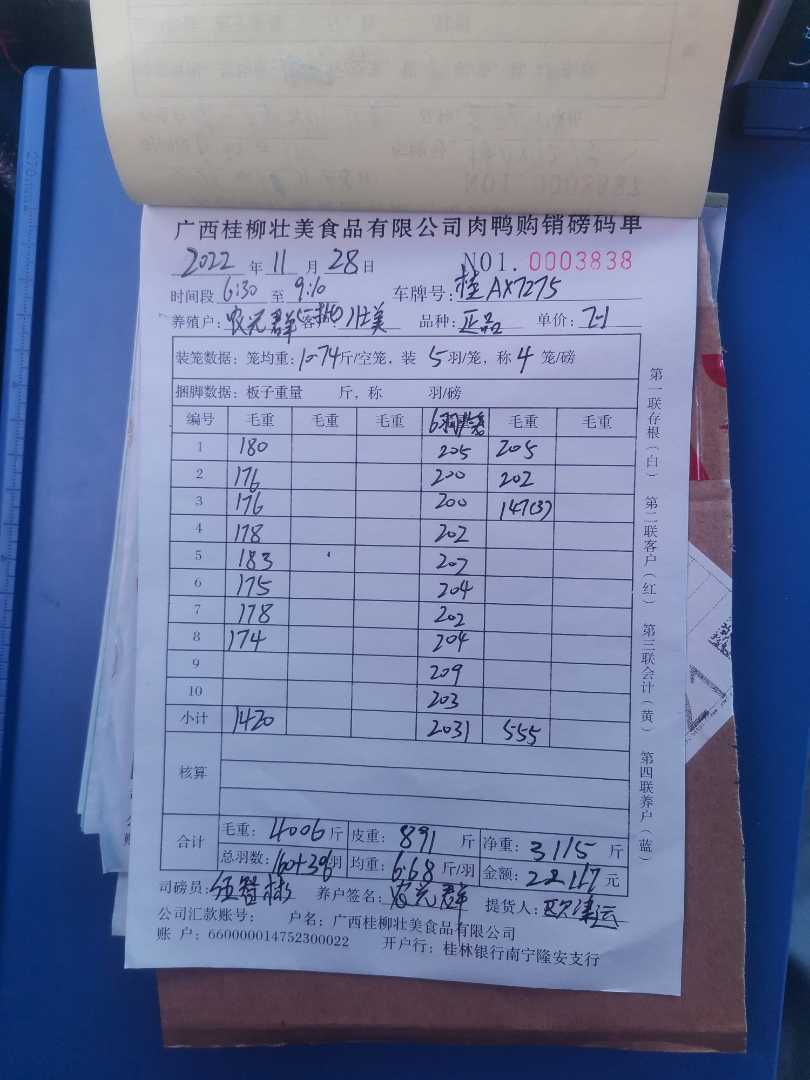 广西桂柳壮美食品有限公司肉鸭购销磅码单
2022 年 11 月 28 日 NO1. 0003838
时间段 6:30 至 9:10 车牌号: 桂AX7275
养殖户: 农元群 客 壮美 品种: 正品 单价: 7.1
装笼数据: 笼均重: 10.74 斤/空笼, 装 5 羽/笼, 称 4 笼/磅
捆脚数据: 板子重量 斤, 称 羽/磅
编号 毛重 毛重 毛重 毛重 毛重
1 180 205 205
2 176 200 202
3 176 200 147(3)
4 178 202
5 183 202
6 175 204
7 178 202
8 174 204
9 209
10 203
小计 1420 2031 555
核算
合计 毛重: 4006 斤 皮重: 891 斤 净重: 3115 斤
总羽数: 160+306 羽 均重: 6.68 斤/羽 金额: 22117 元
司磅员: 伍智彬 养户签名: 农元群 提货人: 欧津运
公司汇款账号: 户名: 广西桂柳壮美食品有限公司
账 户: 660000014752300022 开户行: 桂林银行南宁隆安支行
第一联存根(白) 第二联客户(红) 第三联会计(黄) 第四联养户(蓝)